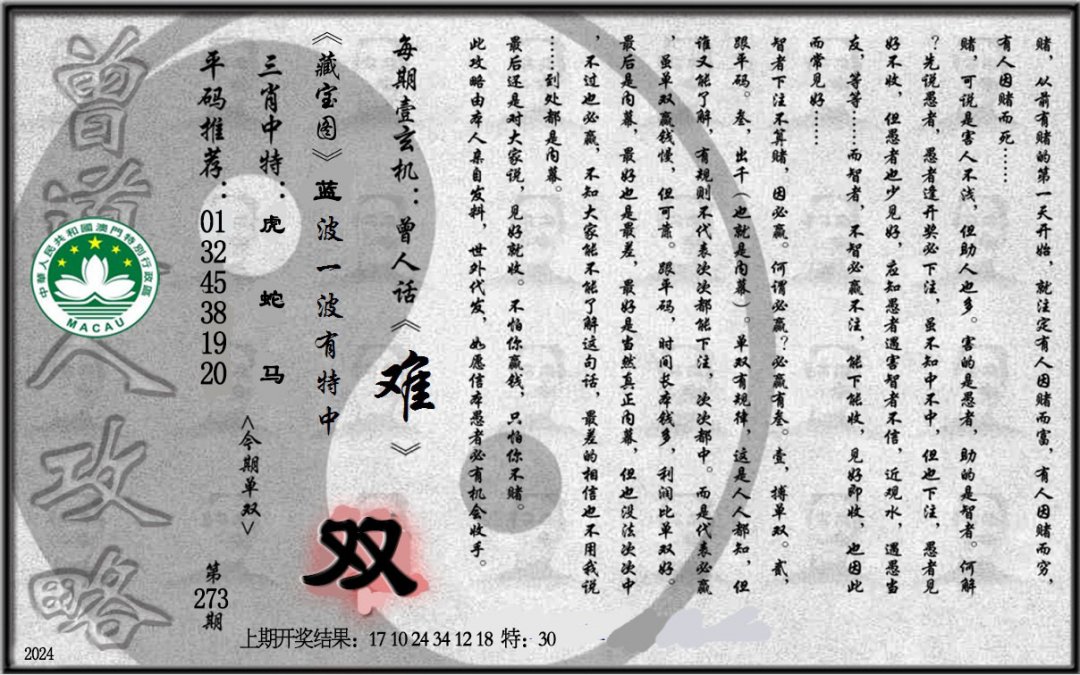 赌，从前有赌的第一天开始，就注定有人因赌而富，有人因赌而穷，
有人因赌而死……
赌，可说是害人不浅，但助人也多。害的是愚者，助的是智者。何解
？先说愚者，愚者逢开奖必下注，虽不知中不中，但也下注，愚者见
好不收，但愚者也少见好，应知愚者遇害智者不信，近观水，遇愚当
友，等等……而智者，不智必赢不注，能下能收，见好即收，也因此
而常见好……
智者下注不算赌，因必赢。何谓必赢？必赢有叁。壹，搏单双。贰，
跟平码。叁，出千（也就是内幕）。单双有规律，这是人人都知，但
谁又能了解，有规则不代表次次都能下注，次次都中。而是代表必赢
，虽单双赢钱慢，但可靠。跟平码，时间长本钱多，利润比单双好。
最后是内幕，最好也是最差，最好是当然真正内幕，但也没法次次中
，不过也必赢，不知大家能不能了解这句话，最差的相信也不用我说
……到处都是内幕。
最后还是对大家说，见好就收。不怕你赢钱，只怕你不赌。
此攻略由本人亲自发料，世外代发，如愿信本愚者必有机会收手。
每期壹玄机：曾人话《难》
《藏宝图》蓝波一波有特中
双
三肖中特：虎 蛇 马
<今期单双>
平码推荐：01 32 45 38 19 20
第273期
曾道人攻略
中華人民共和國澳門特別行政區
MACAU
上期开奖结果：17 10 24 34 12 18 特：30
2024